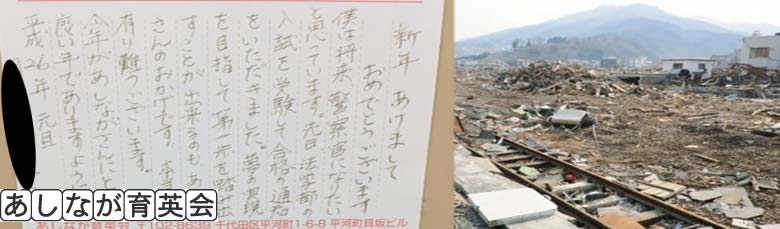 新年 あけまして
おめでとうございます
僕は将来、警察官になりたい
と思っています。先日 法学部の
入試を受験して合格の通知
をいただきました。夢の実現
を目指して第一歩を踏み出
すことが出来るのもあ
さんのおかげです。本当
有り難うございます。
今年があしながさんにと
良い年でありますよう
平成26年 元旦
あしなが育英会
あしなが育英会 〒102-8639 千代田区平河町1-6-8 平河町貝坂ビル